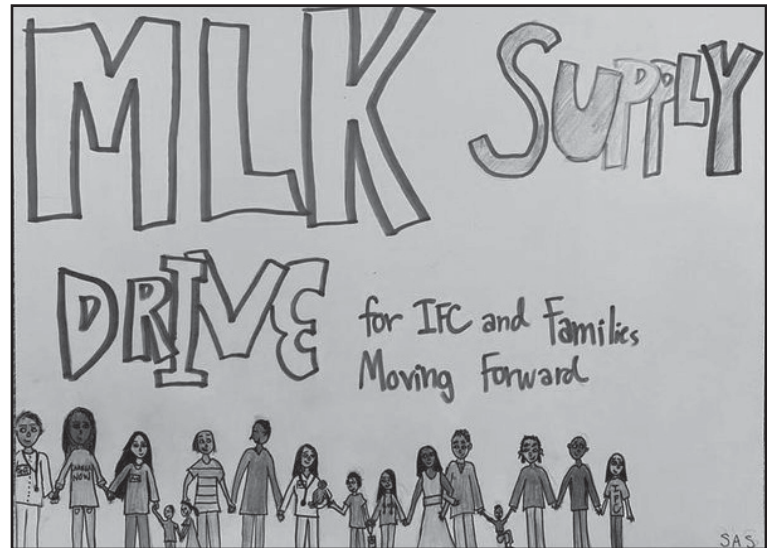 MLK SUPPLY
DRIVE for IFC and Families
Moving Forward
NOW
SAS